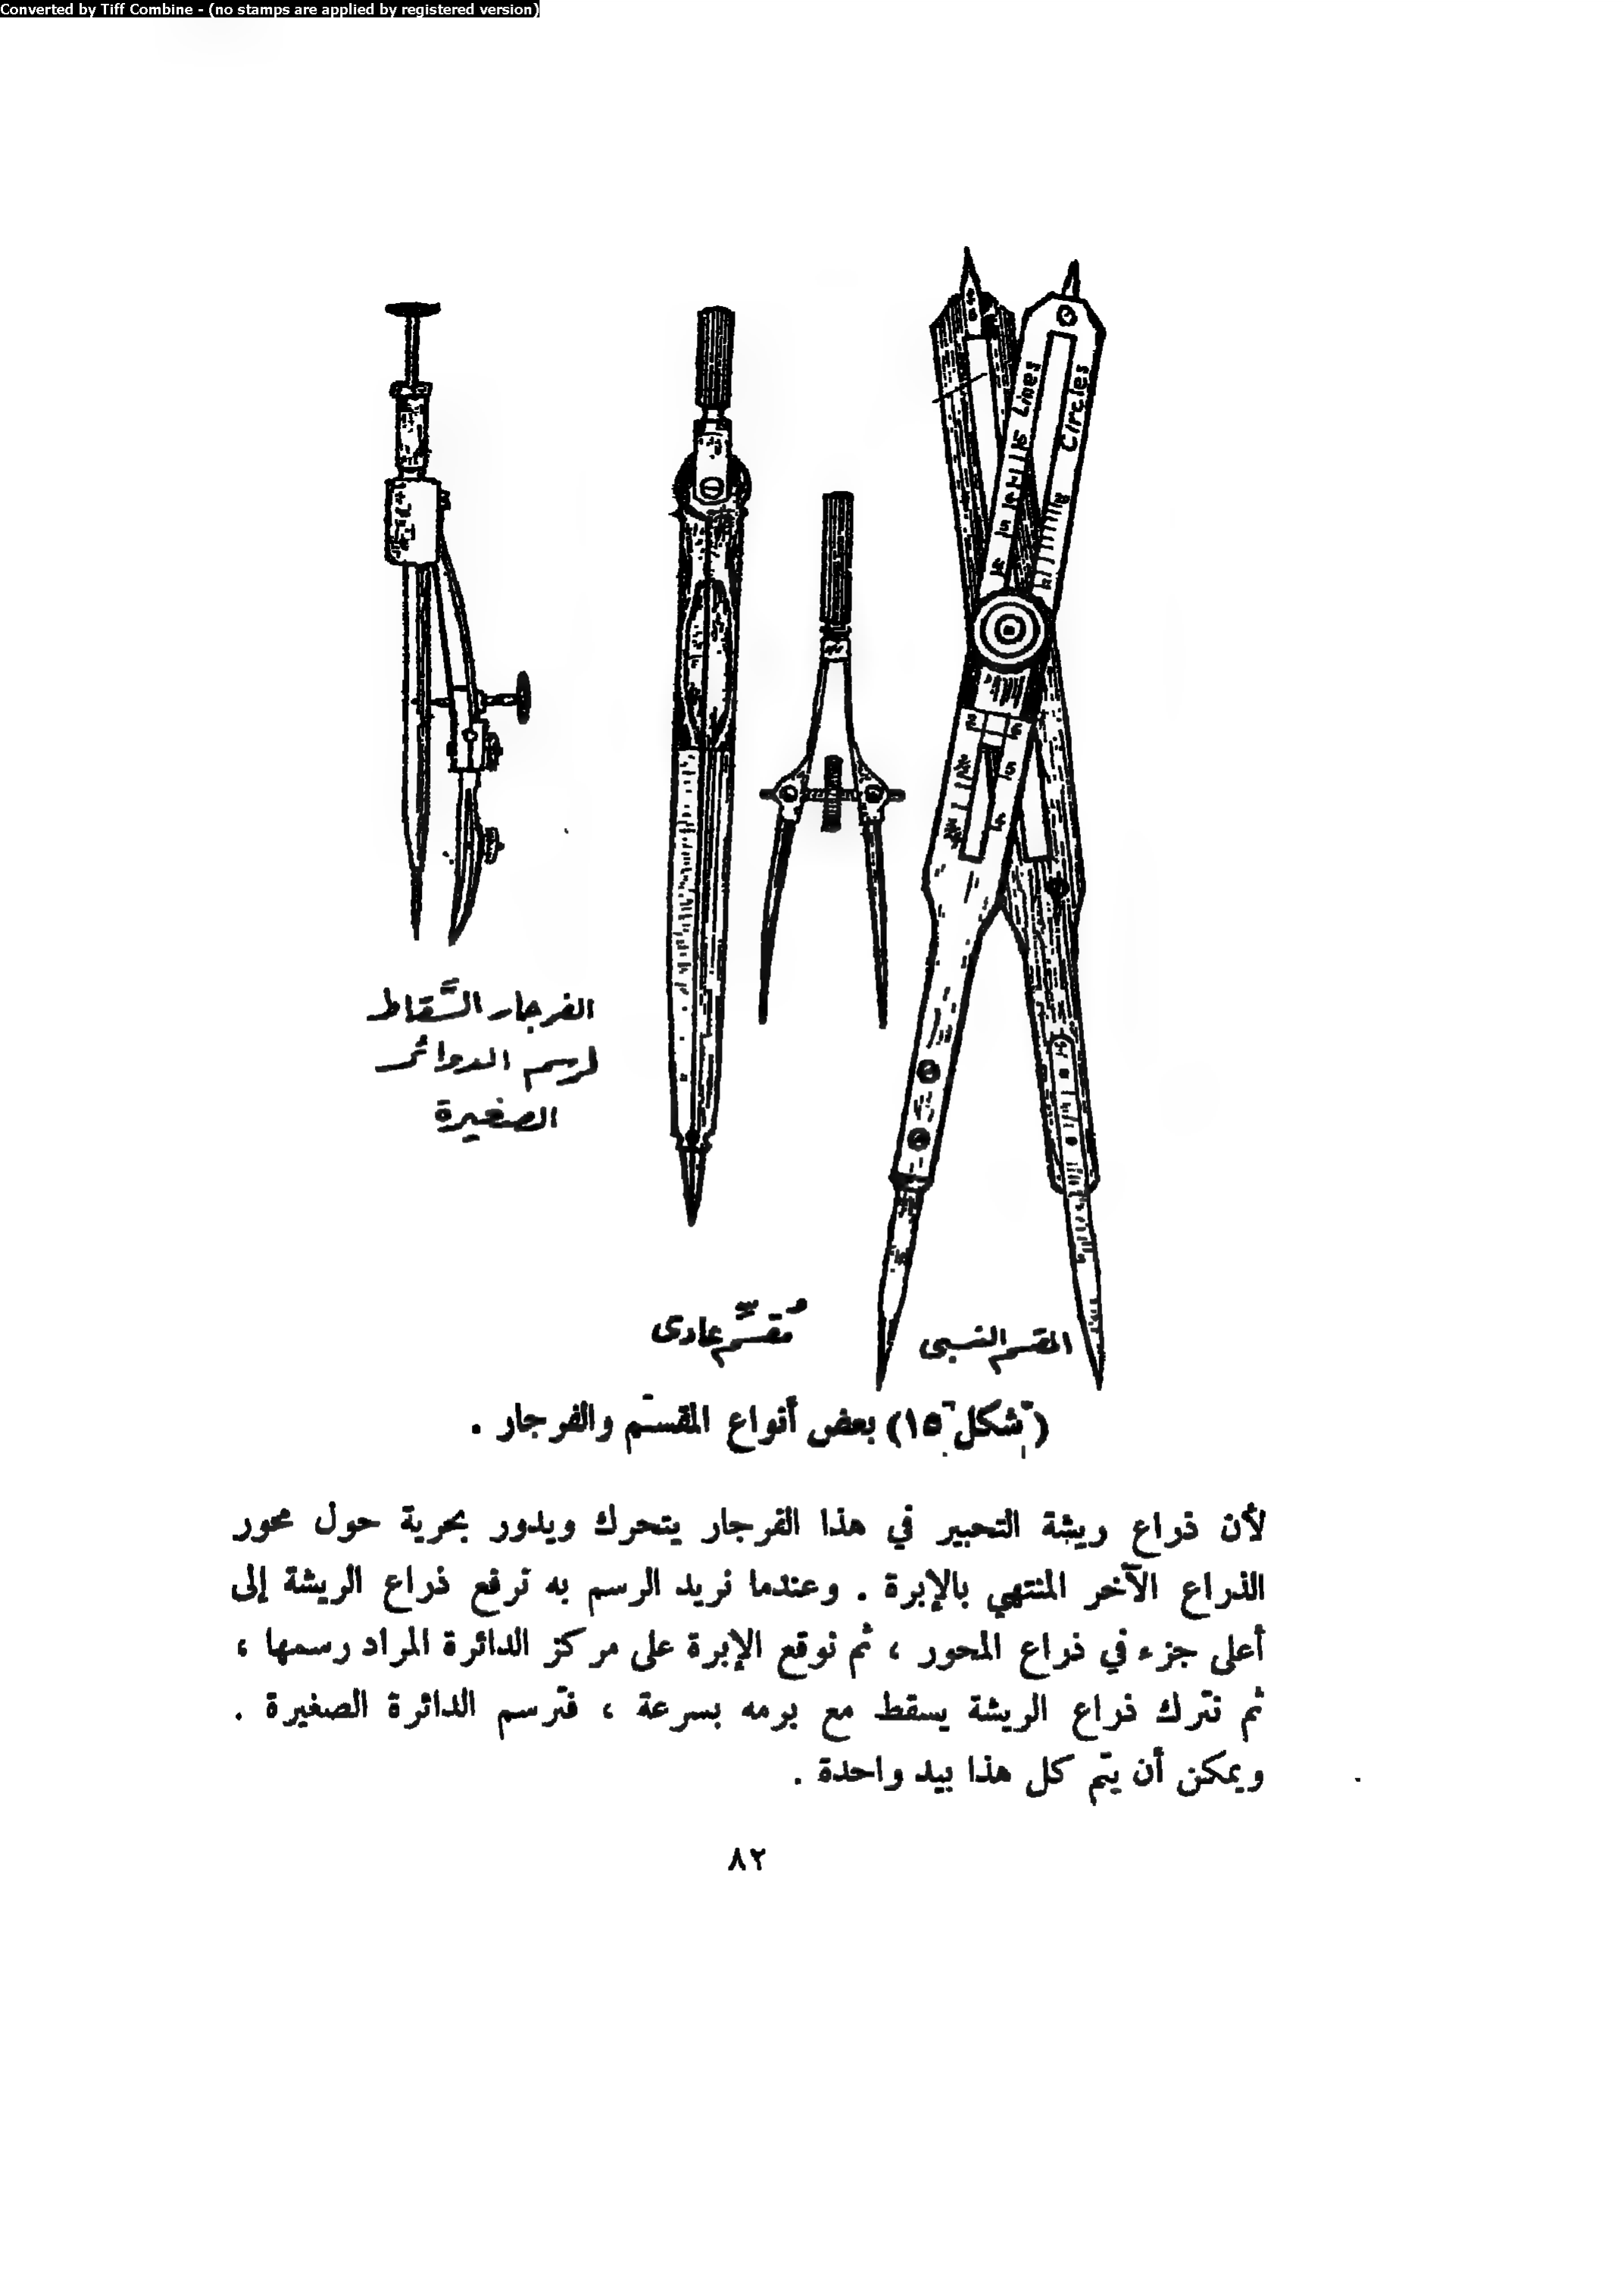 Converted by Tiff Combine - (no stamps are applied by registered version)
Lines
Circles
الفرجار السَّقاط
لرسم الدوائر
الصغيرة
مُقسِّم عادى
المقسم النسبى
(شكل ١٥) بعض أنواع المقسّم والفرجار .
لأن ذراع ريشة التحبير في هذا الفرجار يتحرك ويدور بحرية حول محور
الذراع الآخر المنتهي بالإبرة . وعندما نريد الرسم به نرفع ذراع الريشة إلى
أعلى جزء في ذراع المحور ، ثم نوقع الإبرة على مركز الدائرة المراد رسمها ،
ثم نترك ذراع الريشة يسقط مع برمه بسرعة ، فترسم الدائرة الصغيرة .
ويمكن أن يتم كل هذا بيد واحدة .
٨٢